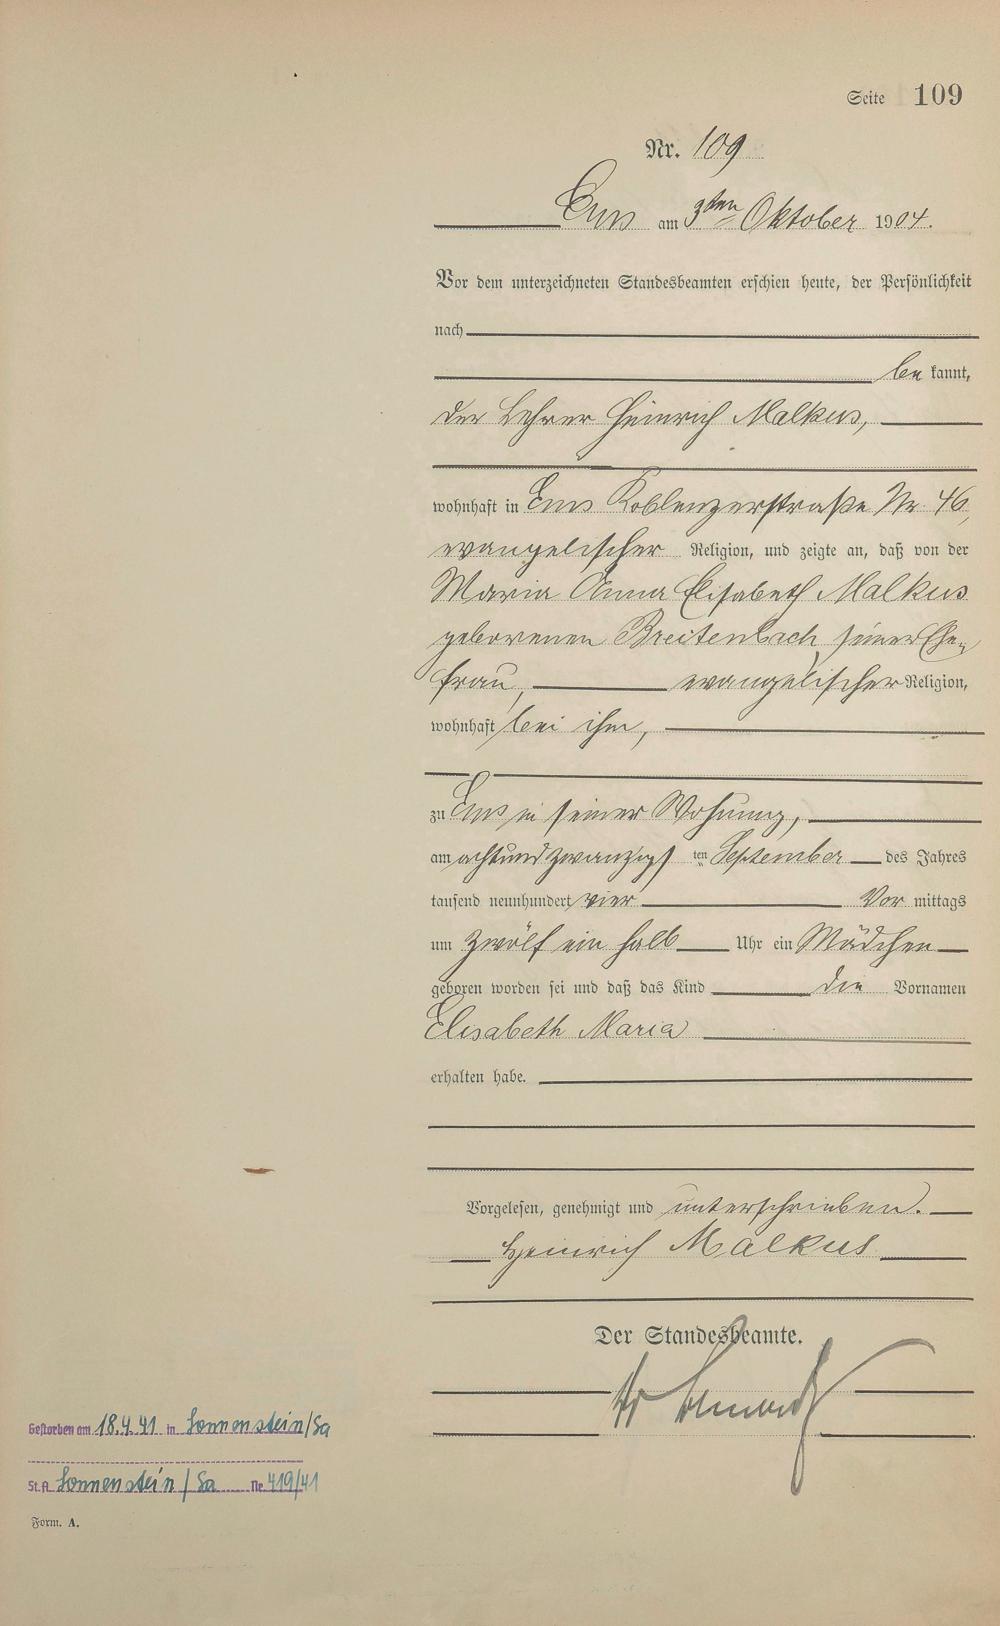 Seite 109
Nr. 109
Ems am 3ten Oktober 1904.
Vor dem unterzeichneten Standesbeamten erschien heute, der Persönlichkeit
nach
be kannt,
der Lehrer Heinrich Malkus,
wohnhaft in Ems Koblenzerstraße Nr 46,
evangelischer Religion, und zeigte an, daß von der
Maria Anna Elisabeth Malkus
geborenen Breitenbach, seiner Ehe-
frau, evangelischer Religion,
wohnhaft bei ihm,
zu Ems in seiner Wohnung,
am achtundzwanzigs ten September des Jahres
tausend neunhundert vier Vor mittags
um zwölf ein halb Uhr ein Mädchen
geboren worden sei und daß das Kind die Vornamen
Elisabeth Maria
erhalten habe.
Vorgelesen, genehmigt und unterschrieben.
Heinrich Malkus
Der Standesbeamte.
Gestorben am 18.4.41 in Sonnenstein/Sa
St.A. Sonnenstein/Sa Nr 419/41
Form. A.